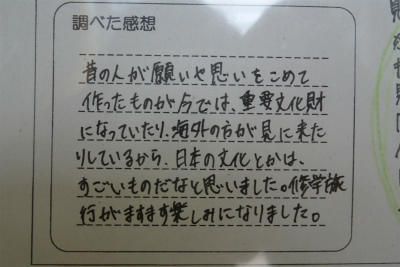 調べた感想
昔の人が願いや思いをこめて
作ったものが今では、重要文化財
になっていたり、海外の方が見に来た
りしているから、日本の文化とかは、
すごいものだなと思いました。修学旅
行がますます楽しみになりました。